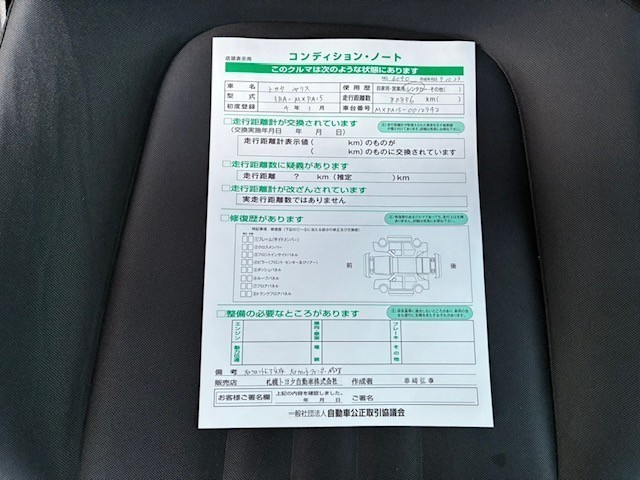 店頭表示用
コンディション・ノート
このクルマは次のような状態にあります
車名 トヨタ ヤリス 使用歴 自家用・営業用(レンタカー・その他)
型式 5BA-MXPA15 走行距離数 km( )
初度登録 4年1月 車台番号 MXPA15-0012742
□走行距離計が交換されています
(交換実施年月日 年 月 日)
走行距離計表示値( km)のものが
( km)のものに交換されています
□走行距離数に疑義があります
走行距離 ? km(推定 )km
□走行距離計が改ざんされています
実走行距離数ではありません
□修復歴があります
①フレーム(サイドメンバー)
②クロスメンバー
③フロントインサイドパネル
④ピラー(フロント・センター及びリアー)
⑤ダッシュパネル
⑥ルーフパネル
⑦フロアパネル
⑧トランクフロアパネル
前 後
□整備の必要なところがあります
エンジン ブレーキ
動力伝達 電装 その他
備考
販売店 札幌トヨタ自動車株式会社 作成者
お客様ご署名欄 上記の内容を確認しました。
年 月 日 ご署名
一般社団法人 自動車公正取引協議会